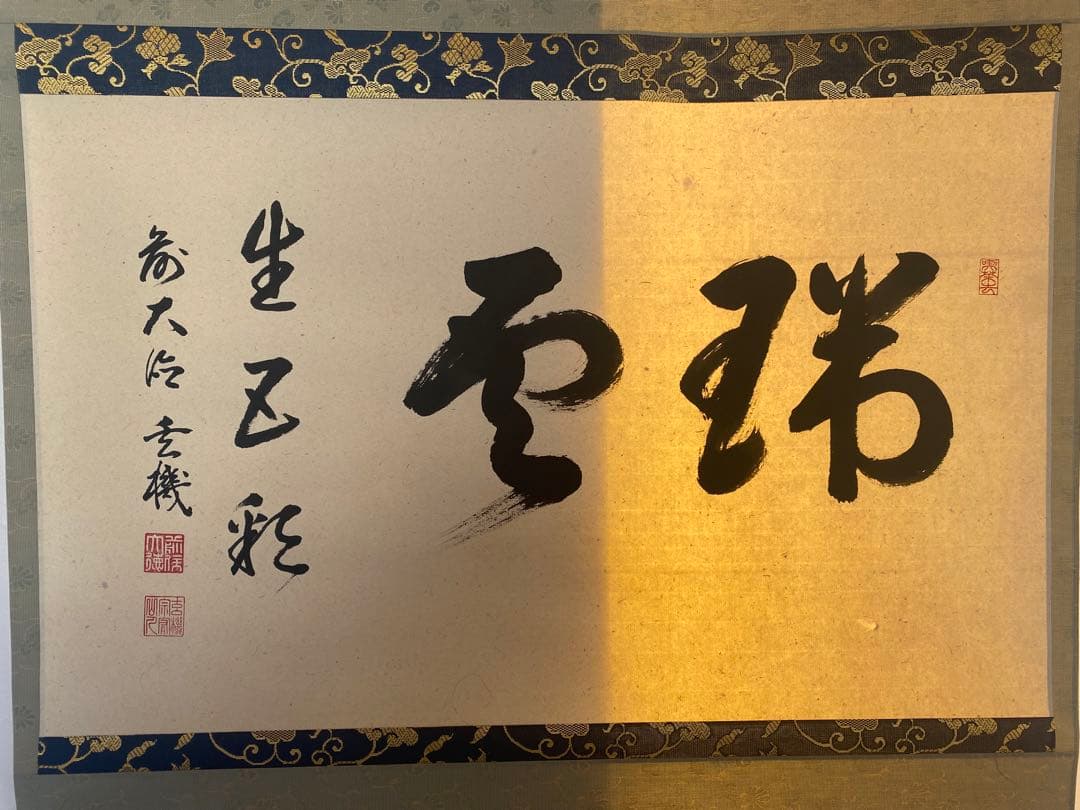 瑞雲
生五彩
前大徳 玄機